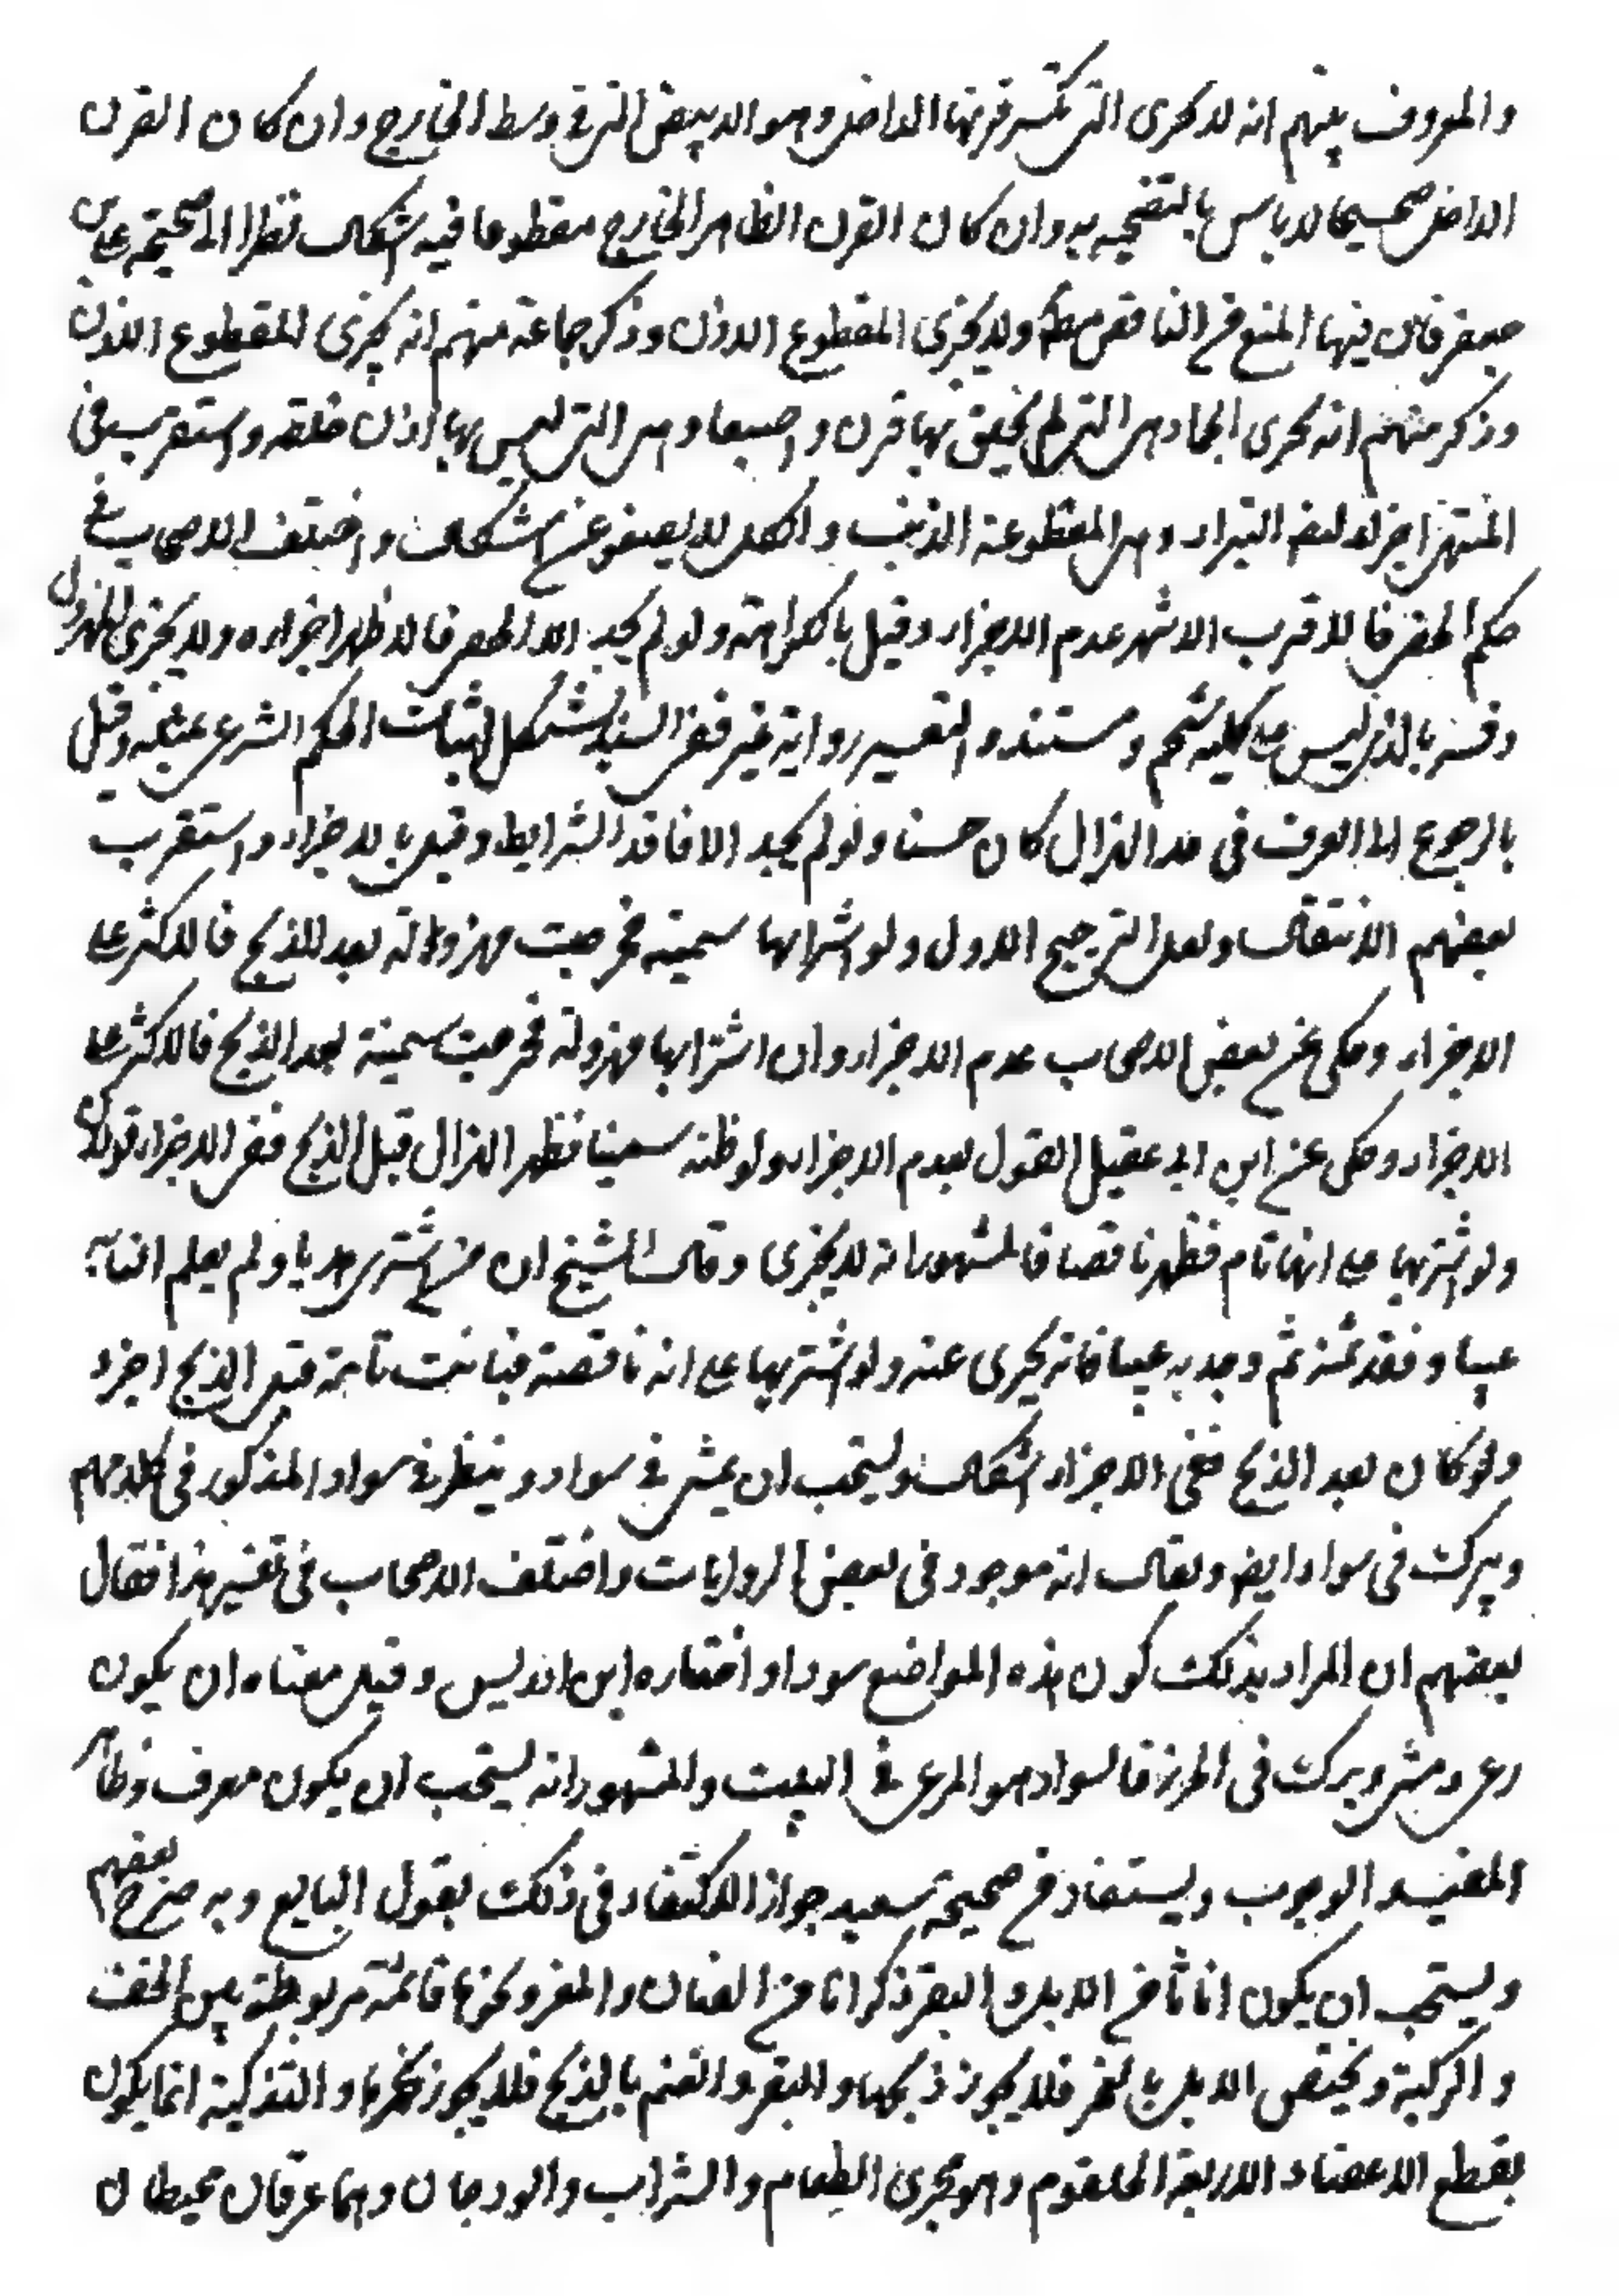 والمعروف بينهم انه لا يجزى التى تكسر قرنها الداخل وهو الابيض التى فى وسط الخارج وان كان القرن
الداخل صحيحا لا باس بالتضحية به وان كان القرن الظاهر الخارج مقطوعا فيه اشكال نظرا الى صحيحة على بن
جعفر فان فيها المنع من الناقص مطلقا ولا يجزى المقطوع الاذن وذكر جماعة منهم انه يجزى المقطوع الاذن
وذكر منهم انه يجزى الجما وهى التى لم يخلق لها قرن و اصمعا وهى التى ليس لها اذن خلقه واستقرب فى
المنتهى اجزاء البتراء وهى المقطوعة الذنب والكل لا يصفو عن اشكال واختلف الاصحاب فى
حكم الخصى فالاقرب الاشهر عدم الاجزاء وقيل بالكراهة ولو لم يجد الا الخصى فالاظهر اجزاءه ولا يجزى المهزول
وفسر بالذى ليس على كليته شحم ومستند التفسير رواية غير نقى السند يشكل اثبات الحكم الشرعى بمثله وقيل
بالرجوع الى العرف فى حد الهزال كان حسنا ولو لم يجد الا فاقد الشرايط وقيل بالاجزاء واستقرب
بعضهم الانتقال ولعل الترجيح الاول ولو اشتراها سمينة فخرجت مهزولة بعد الذبح فالاكثر على
الاجزاء وحكى عن بعض الاصحاب عدم الاجزاء وان اشتراها مهزولة فخرجت سمينة بعد الذبح فالاكثر على
الاجزاء وحكى عن ابن ابى عقيل القول بعدم الاجزاء ولو ظنه سمينا فظهر الهزال قبل الذبح ففى الاجزاء قولان
ولو اشتريها على انها تام فظهر ناقصا فالمشهور انه لا يجزى وقال الشيخ ان من اشترى هديا ولم يعلم ان به
عيبا ونقد ثمنه ثم وجد به عيبا فانه يجزى عنه ولو اشتريها على انه ناقصة فبانت تامة قبل الذبح اجزء
ولو كان بعد الذبح ففى الاجزاء اشكال ويستحب ان يمشى فى سواد وينظر فى سواد المذكور فى كلامهم
ويبرك فى سواد ايضا ويقال انه موجود فى بعض الروايات واختلف الاصحاب فى تفسير هذا فقال
بعضهم ان المراد بذلك كون هذه المواضع سوداء واختاره ابن ادريس وقيل معناه ان يكون
رعى ومشى وبرك فى الخضرة فالسواد هو المرعى فى البيت والمشهور انه يستحب ان يكون معرف وظاهر
المفيد الوجوب ويستفاد من صحيحة سعيد جواز الاكتفاء فى ذلك بقول البايع وبه صرح بعضهم
ويستحب ان يكون اناثا من الابل والبقر ذكرانا من الضان والمعز ونحرها قائمة مربوطة بين الخف
والركبة ويختص الابل بالنحر فلا يجوز ذبحها والبقر والغنم بالذبح فلا يجوز نحرها والتذكية انما يكون
بقطع الاعضاء الاربعة الحلقوم وهو مجرى الطعام والشراب والودجان وهما عرقان محيطان